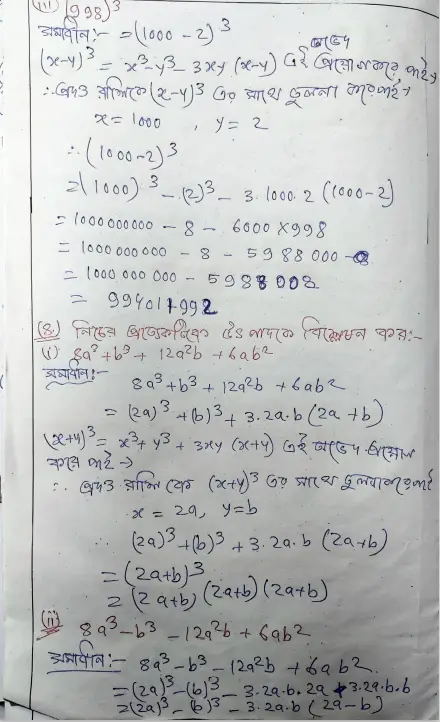 (iii) (998)³
সমাধান:- = (1000 - 2)³
(x-y)³ = x³-y³- 3xy (x-y) এই অভেদ প্রয়োগ করে পাই→
∴ প্রদত্ত রাশিকে (x-y)³ এর সাথে তুলনা করে পাই→
x = 1000 , y = 2
∴ (1000-2)³
= (1000)³ - (2)³ - 3.1000.2 (1000-2)
= 1000000000 - 8 - 6000 X 998
= 1000 000 000 - 8 - 5988 000
= 1000 000 000 - 5988008
= 994011992
(8.) নিচের প্রত্যেকটিকে উৎপাদকে বিশ্লেষণ কর:-
(i) 8a³+b³+ 12a²b +6ab²
সমাধান:-
8a³+b³ + 12a²b + 6ab²
= (2a)³ + (b)³ + 3.2a.b (2a + b)
(x+y)³ = x³+ y³ + 3xy (x+y) এই অভেদ প্রয়োগ
করে পাই →
∴ প্রদত্ত রাশি কে (x+y)³ এর সাথে তুলনা করে পাই
x = 2a, y=b
∴ (2a)³ +(b)³ + 3.2a.b (2a+b)
= (2a+b)³
= (2a+b) (2a+b) (2a+b)
(ii) 8a³-b³ -12a²b + 6ab²
সমাধান:- 8a³-b³ -12a²b + 6ab²
= (2a)³-(b)³ - 3.2a.b.2a + 3.2a.b.b
= (2a)³ - (b)³ - 3.2a.b (2a-b)